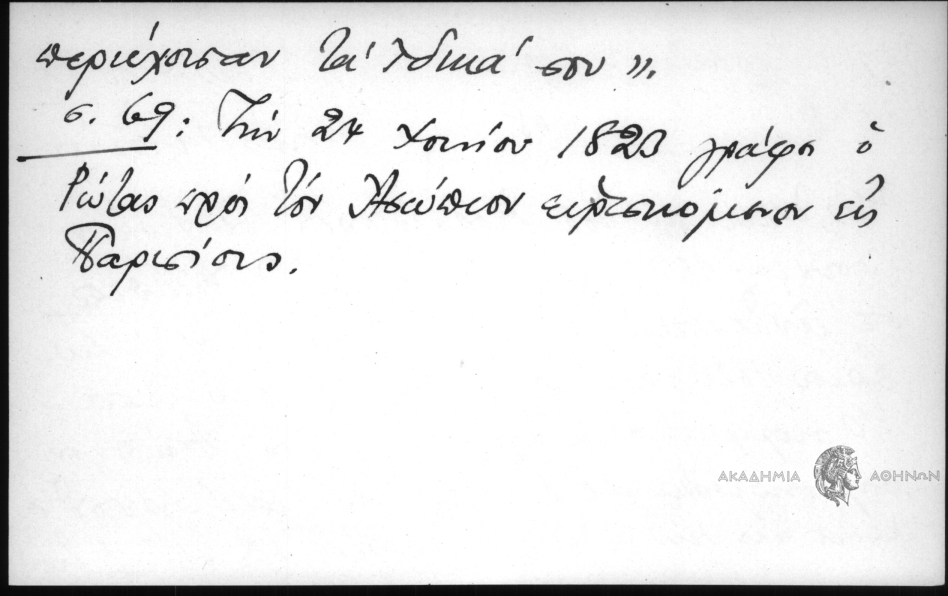 περιέχουσαν τά ἰδικά σου».
σ. 69: Τήν 24 Ἰουνίου 1823 γράφει ὁ
Ρώτας πρός τόν Ἀσώπιον εὑρισκόμενον εἰς
Παρισίους.
ΑΚΑΔΗΜΙΑ ΑΘΗΝΩΝ